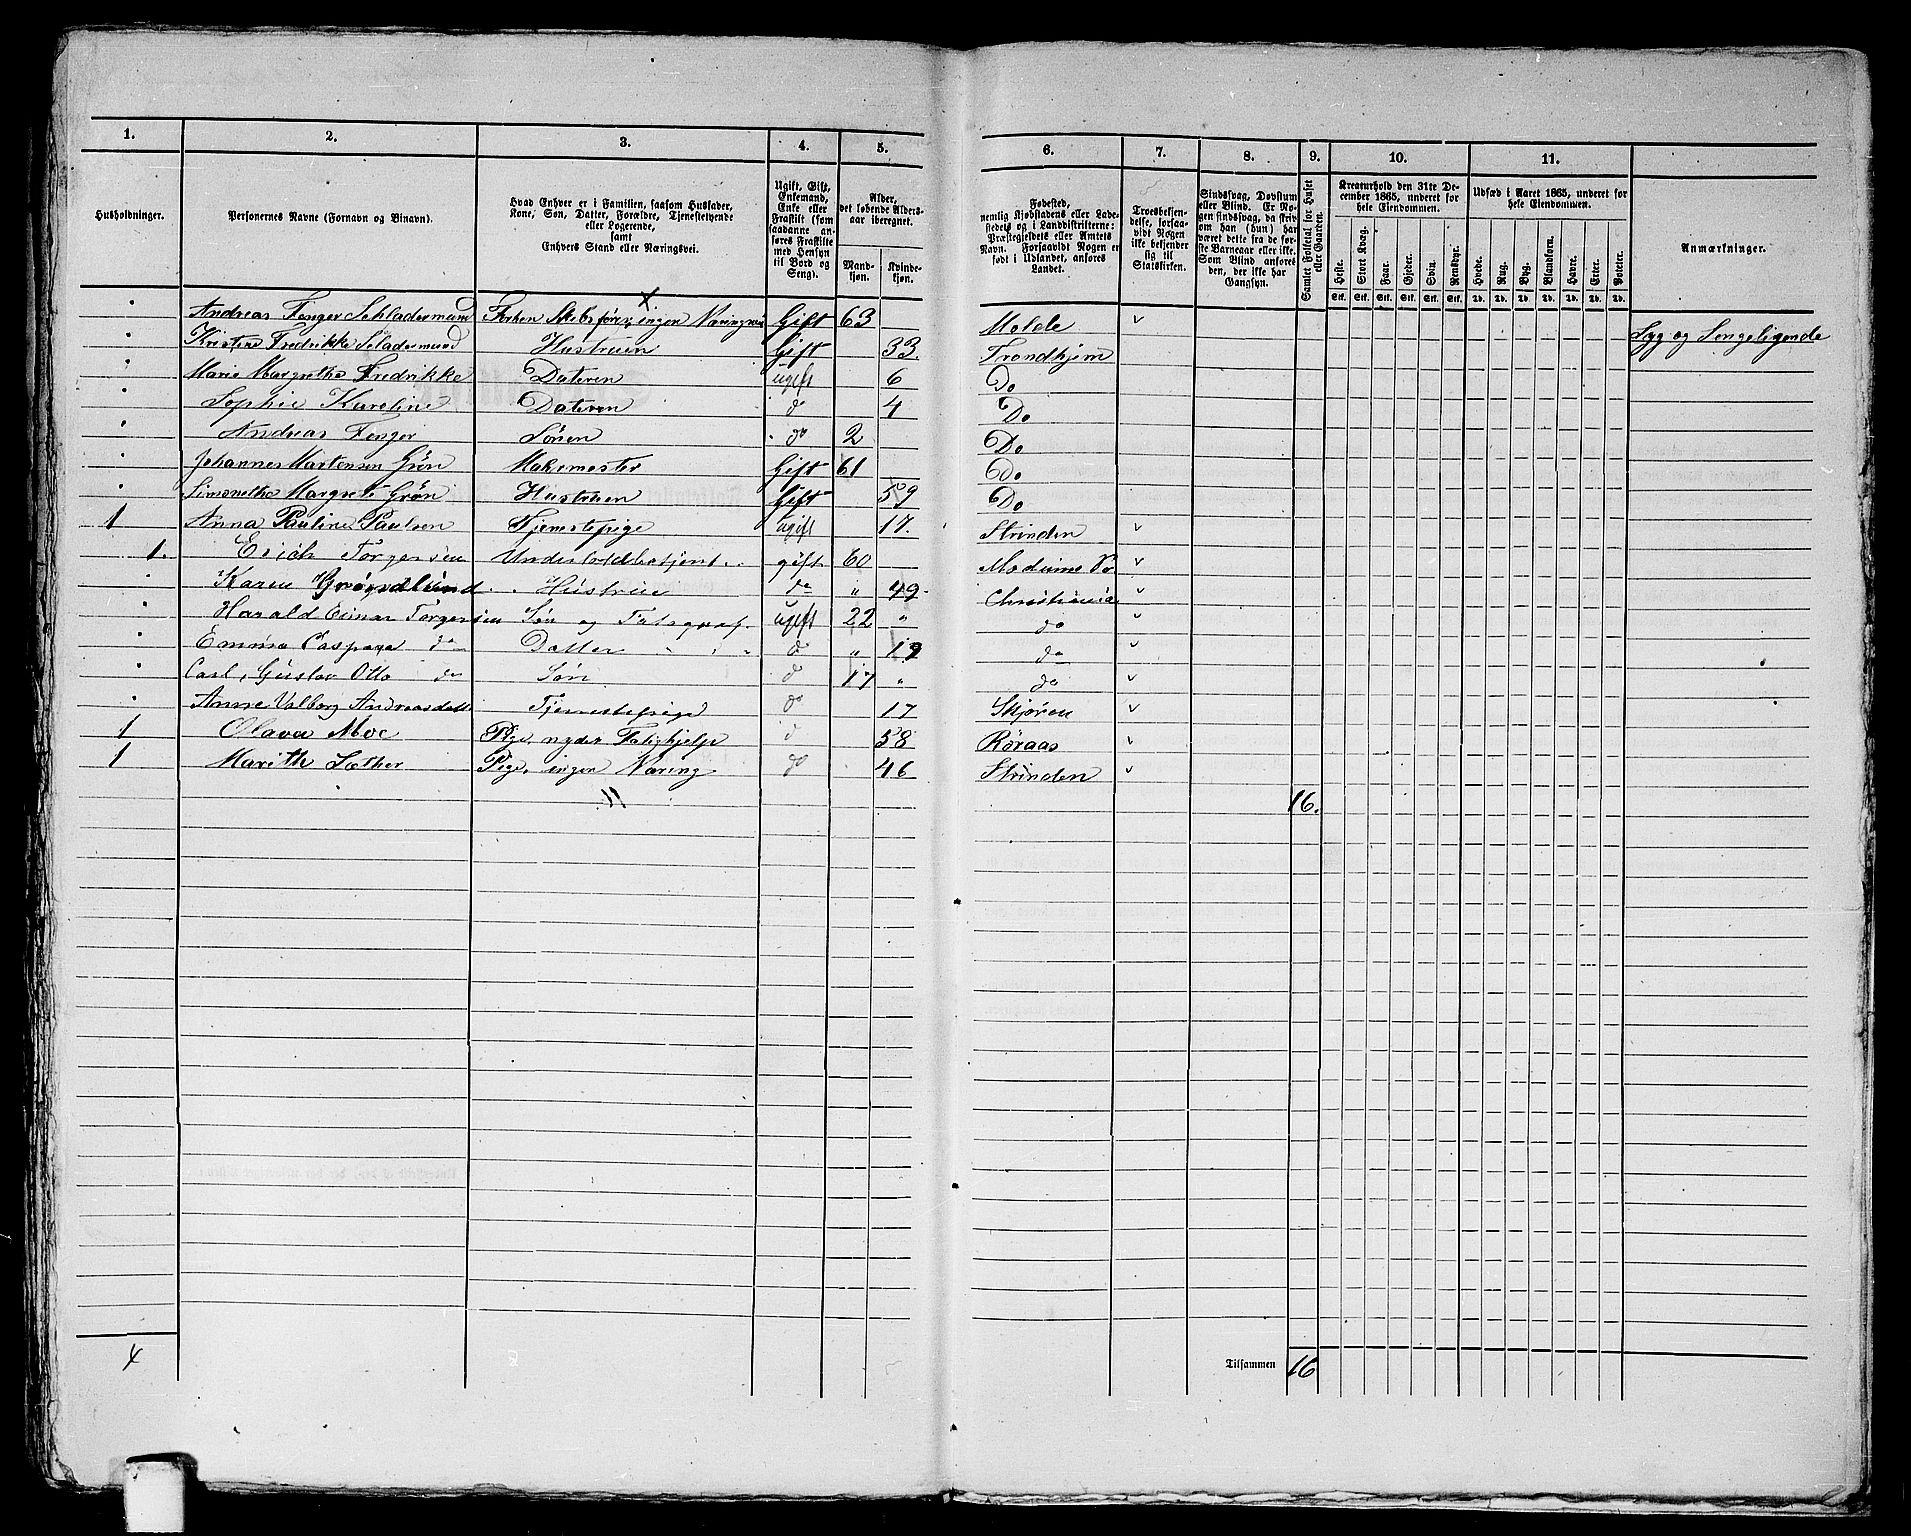 1. 2. 3. 4. 5. 6. 7. 8. 9. 10. 11.
Husholdninger.
Personernes Navne (Fornavn og Binavn).
Hvad Enhver er i Familien, saasom Husfader,
Kone, Søn, Datter, Forældre, Tjenestetyende
eller Logerende,
samt
Enhvers Stand eller Næringsvei.
Ugift, Gift,
Enkemand,
Enke eller
Fraskilt (som
saadanne an-
føres Fraskilte
med Hensyn
til Bord og
Seng).
Alder,
det løbende Alders-
aar iberegnet.
Mand-
kjøn.
Kvinde-
kjøn.
Fødested,
nemlig Kjøbstadens eller Lade-
stedets og i Landdistrikterne:
Præstegjeldets eller Amtets
Navn. Forsaavidt Nogen er
født i Udlandet, anføres
Landet.
Troesbekjen-
delse, forsaa-
vidt Nogen
ikke bekjender
sig til
Statskirken.
Sindssvag, Døvstum
eller Blind. Er No-
gen sindssvag, da skriv
om han (hun) har
været dette fra de før-
ste Barneaar eller ikke.
Som Blind anføres
den, der ikke har
Gangsyn.
Samlet Folketal for Huset
eller Gaarden.
Kreaturhold den 31te De-
cember 1865, underet for
hele Eiendommen.
Heste. Stort Kvæg. Faar. Gjeder. Svin. Rensdyr.
Stk. Stk. Stk. Stk. Stk. Stk.
Udsæd i Aaret 1865, underet for
hele Eiendommen.
Hvede. Rug. Byg. Blandkorn. Havre. Erter. Poteter.
Td. Td. Td. Td. Td. Td. Td.
Anmærkninger.
Andreas Fenger Schladermund Forhen Skibsfører, ingen Næringsvei Gift 63 Molde v
Fredrikke Hustruen Gift 33 Trondhjem Syg og Sengeliggende
Marie Margrethe Fredrikke Dateren ugift 6 Do
Sophie Karoline Dateren do 4 Do
Andreas Fenger Sønen do 2 Do
Johannes Martensen Grøn Gift 61 Do
Simonetha Margrete Grøn Hustruen Gift 59 Do
1 Anna Pauline Paulsen Tjenstepige ugift 17. Strinden v
1. Erich Torgersen Undertoldbetjent gift 60 v
Karen Hustrue do " 49 Christiania v
Harald Einar Torgersen Søn og Telegraf. ugift 22 " do v
Emma do Datter d " 19 do v
Carl, Gustav Otto do Søn d 17 " do v
Anne Valborg Andreasdatt Tjenestepige do 17 v
1 Olava Moe Pige, nyder Fatighjelp d 58 Røraas v
1 Marith Sæther Pige, ingen Næring do 46 Strinden v
16.
4 Tilsammen 16